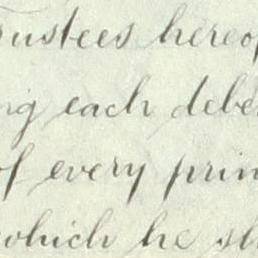 rustees hereof
ng each debe
of every prin
which he sh